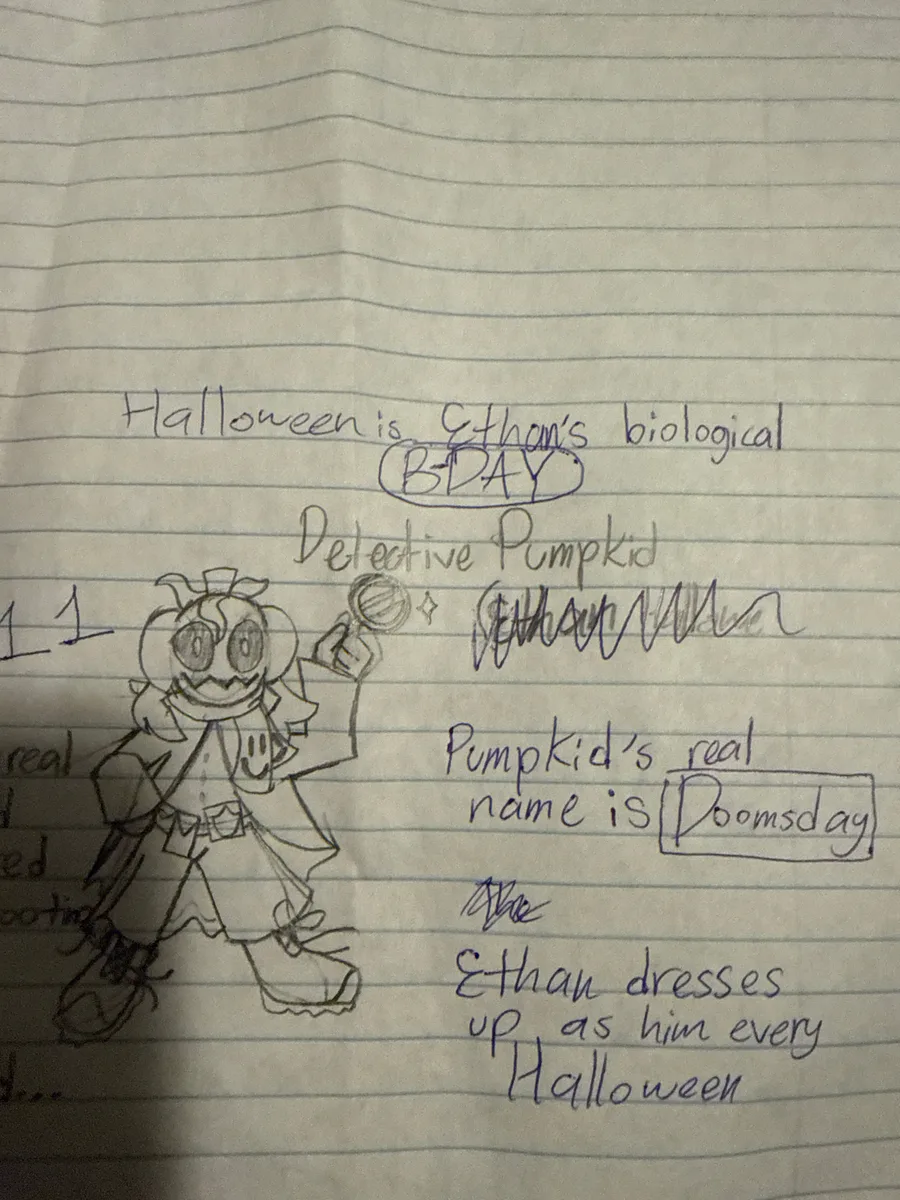 Halloween is Ethan's biological
B-DAY
Detective Pumpkid
11
Pumpkid's real
name is Doomsday
real
ed
Ethan dresses
up as him every
Halloween